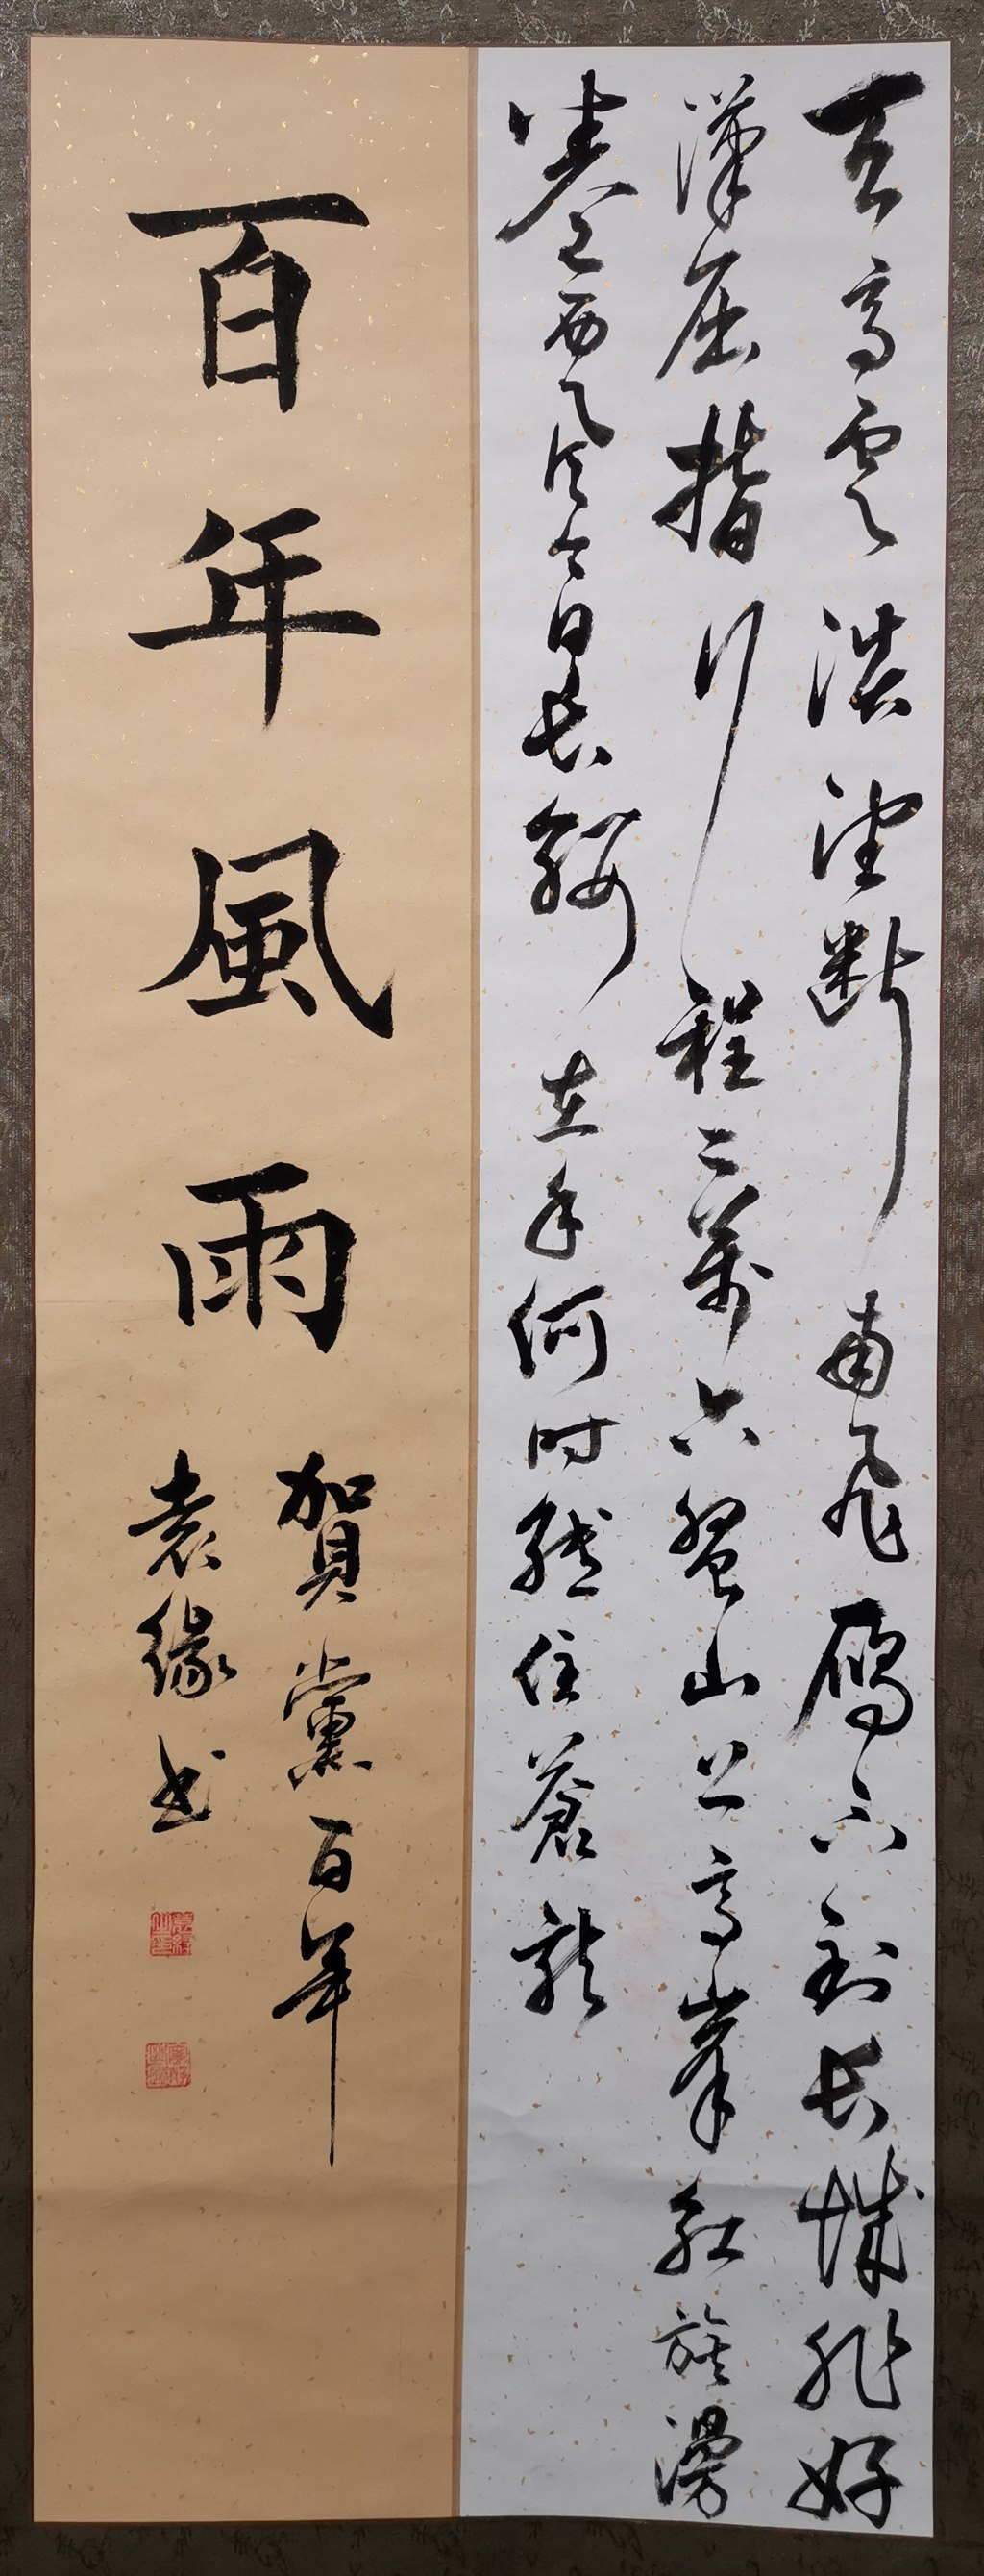 天高雲淡望断南飛雁不到长城非好
漢屈指行程二萬六盤山上高峯红旗漫
卷西风今日长纓在手何时缚住蒼龍
百年風雨
賀黨百年
袁缘书